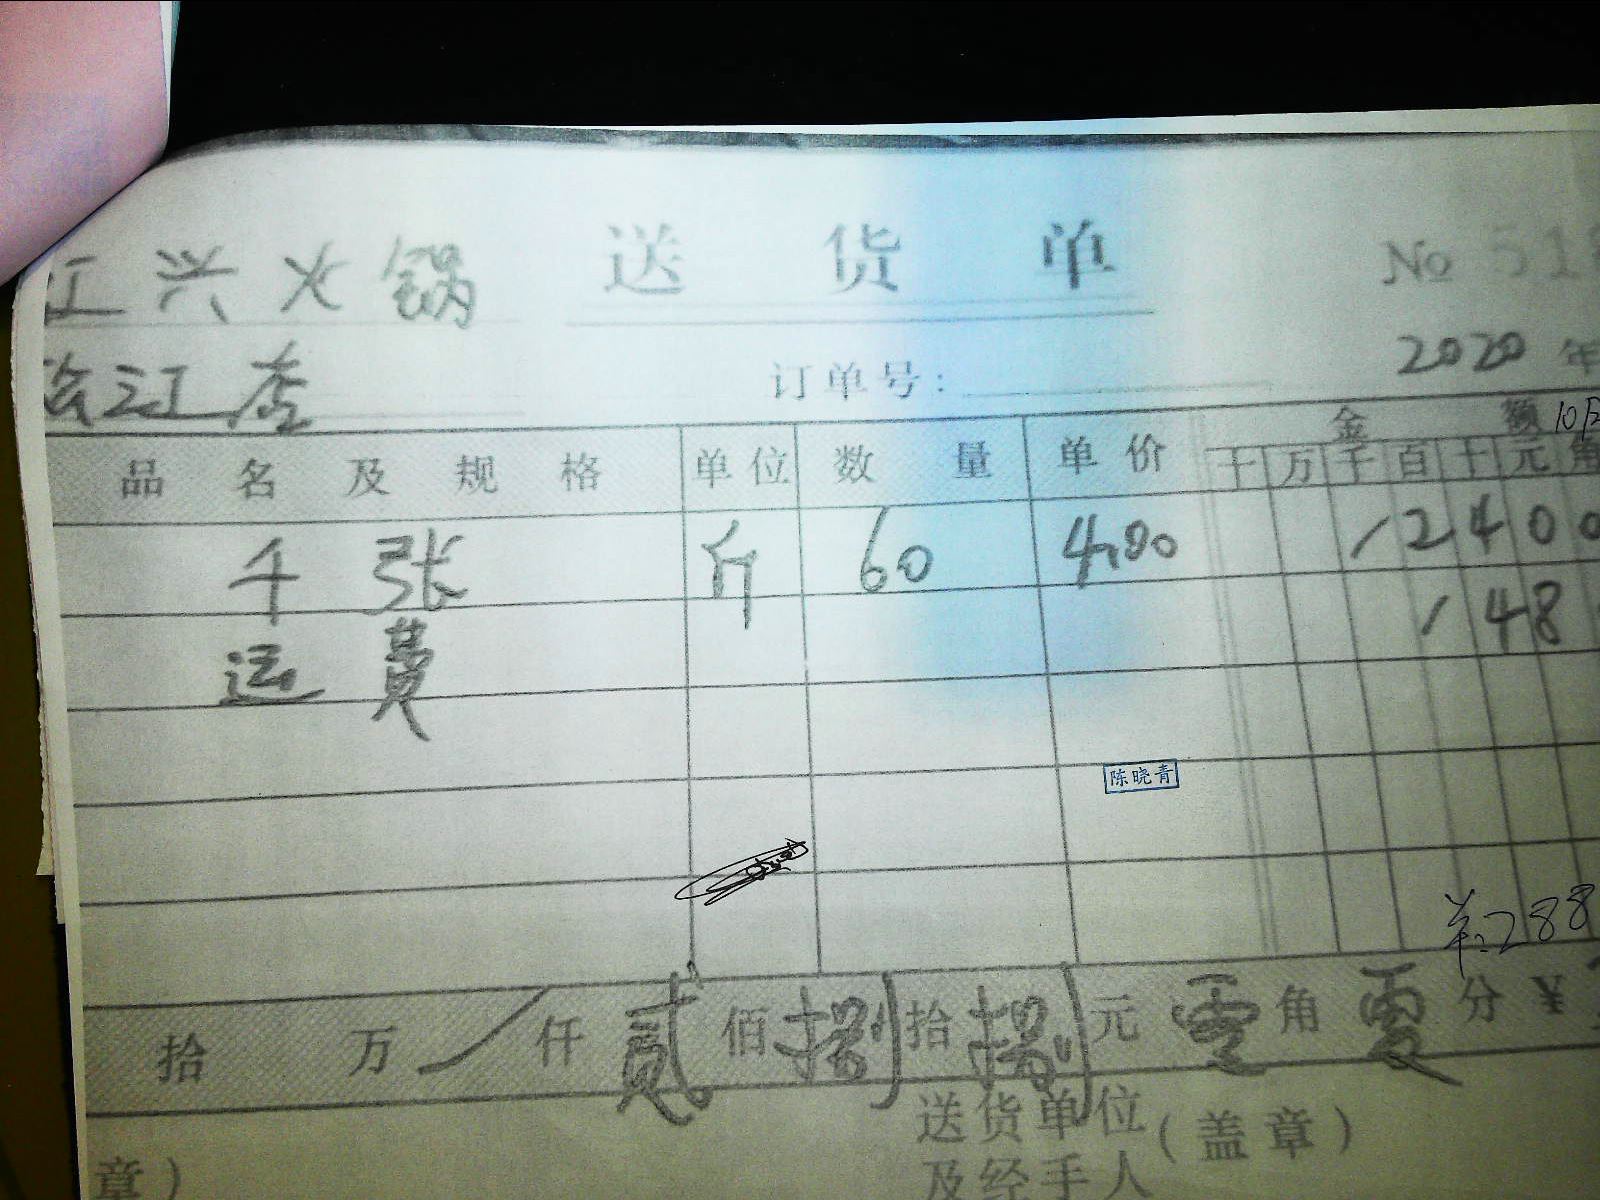 江兴火锅 送货单 No 518
江店 订单号: 2020年
品名及规格 单位 数量 单价 金额 10月
十万千百十元角
千张 斤 60 4.00 /24000
运费 /48
陈晓青
¥:288
拾 万 / 仟 贰 佰 捌 拾 捌 元 零 角 零 分 ¥
送货单位
及经手人 (盖章)
章)